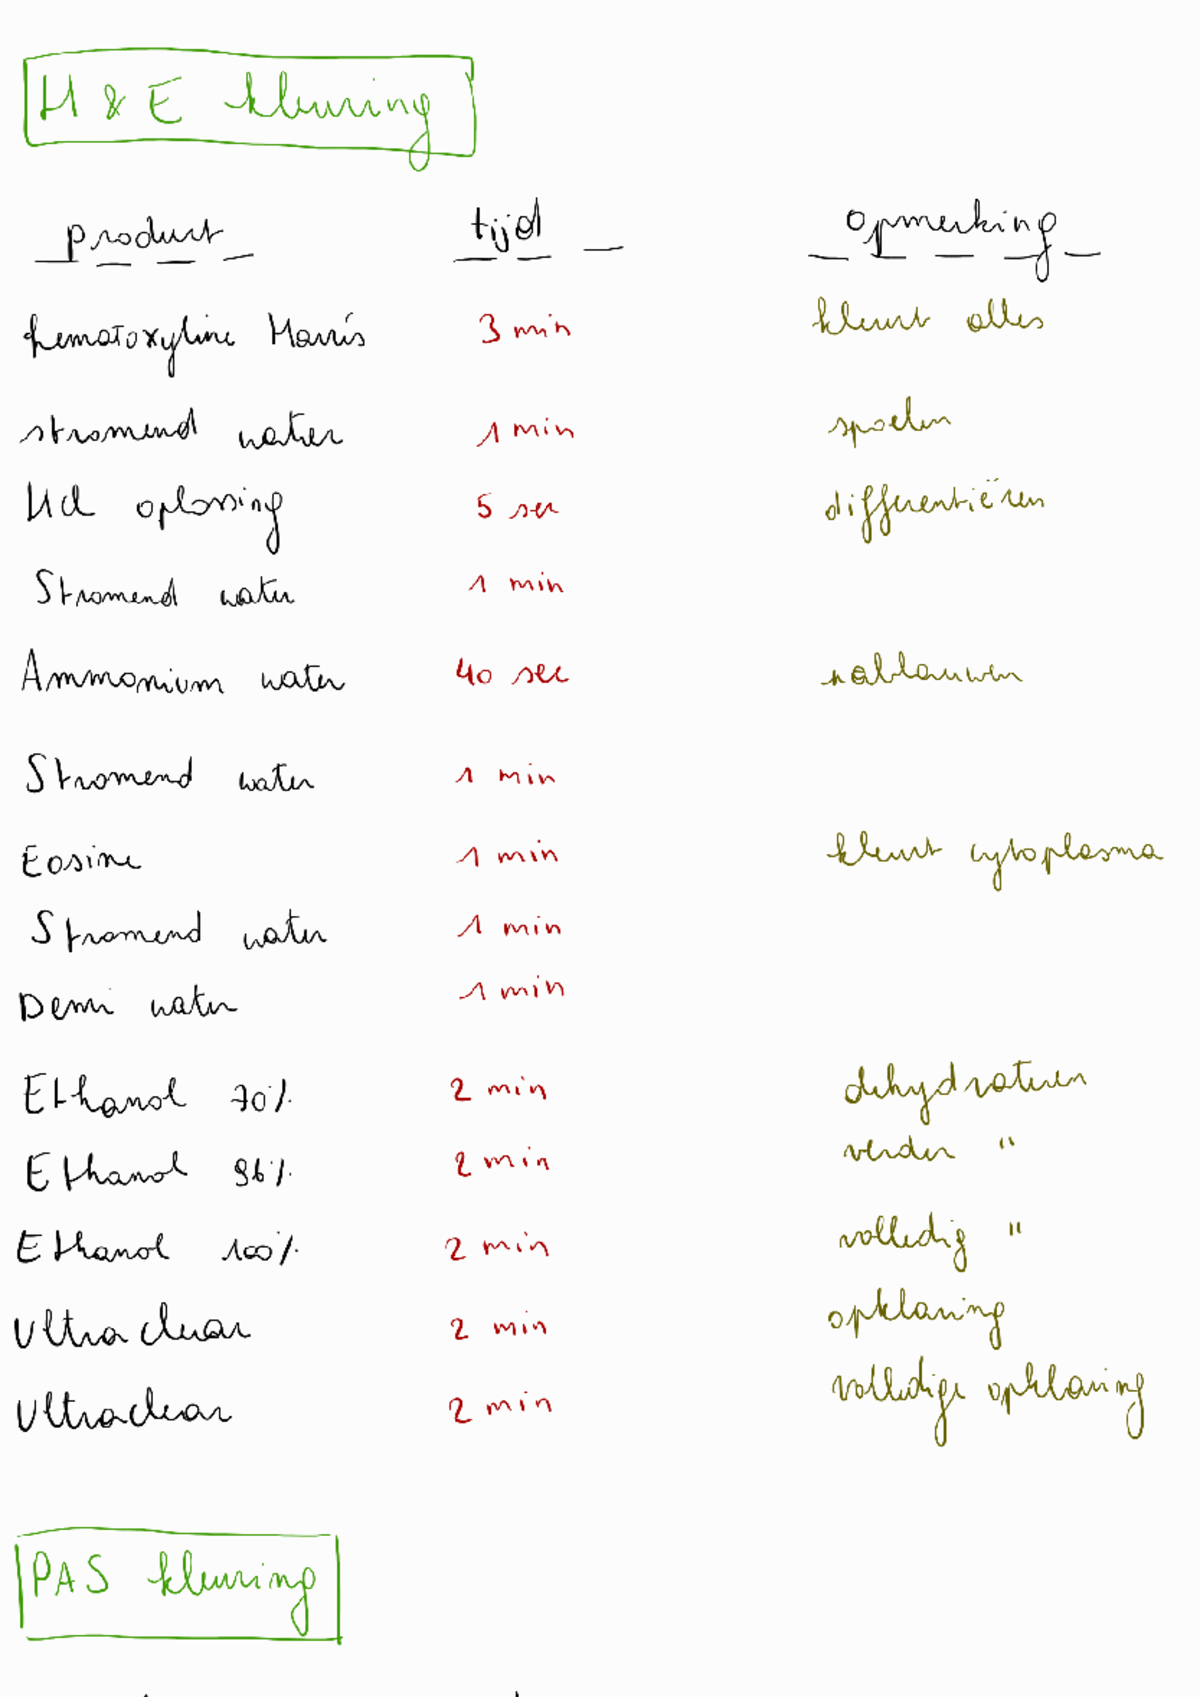 H & E kleuring
product tijd opmerking
hematoxyline Harris 3 min kleurt alles
stromend water 1 min spoelen
HCl oplossing 5 sec differentiëren
Stromend water 1 min
Ammonium water 40 sec nablauwen
Stromend water 1 min
Eosine 1 min kleurt cytoplasma
Stromend water 1 min
Demi water 1 min
Ethanol 70% 2 min dehydrateren
Ethanol 96% 2 min verder "
Ethanol 100% 2 min volledig "
Ultraclear 2 min opklaring
Ultraclear 2 min volledige opklaring
PAS kleuring